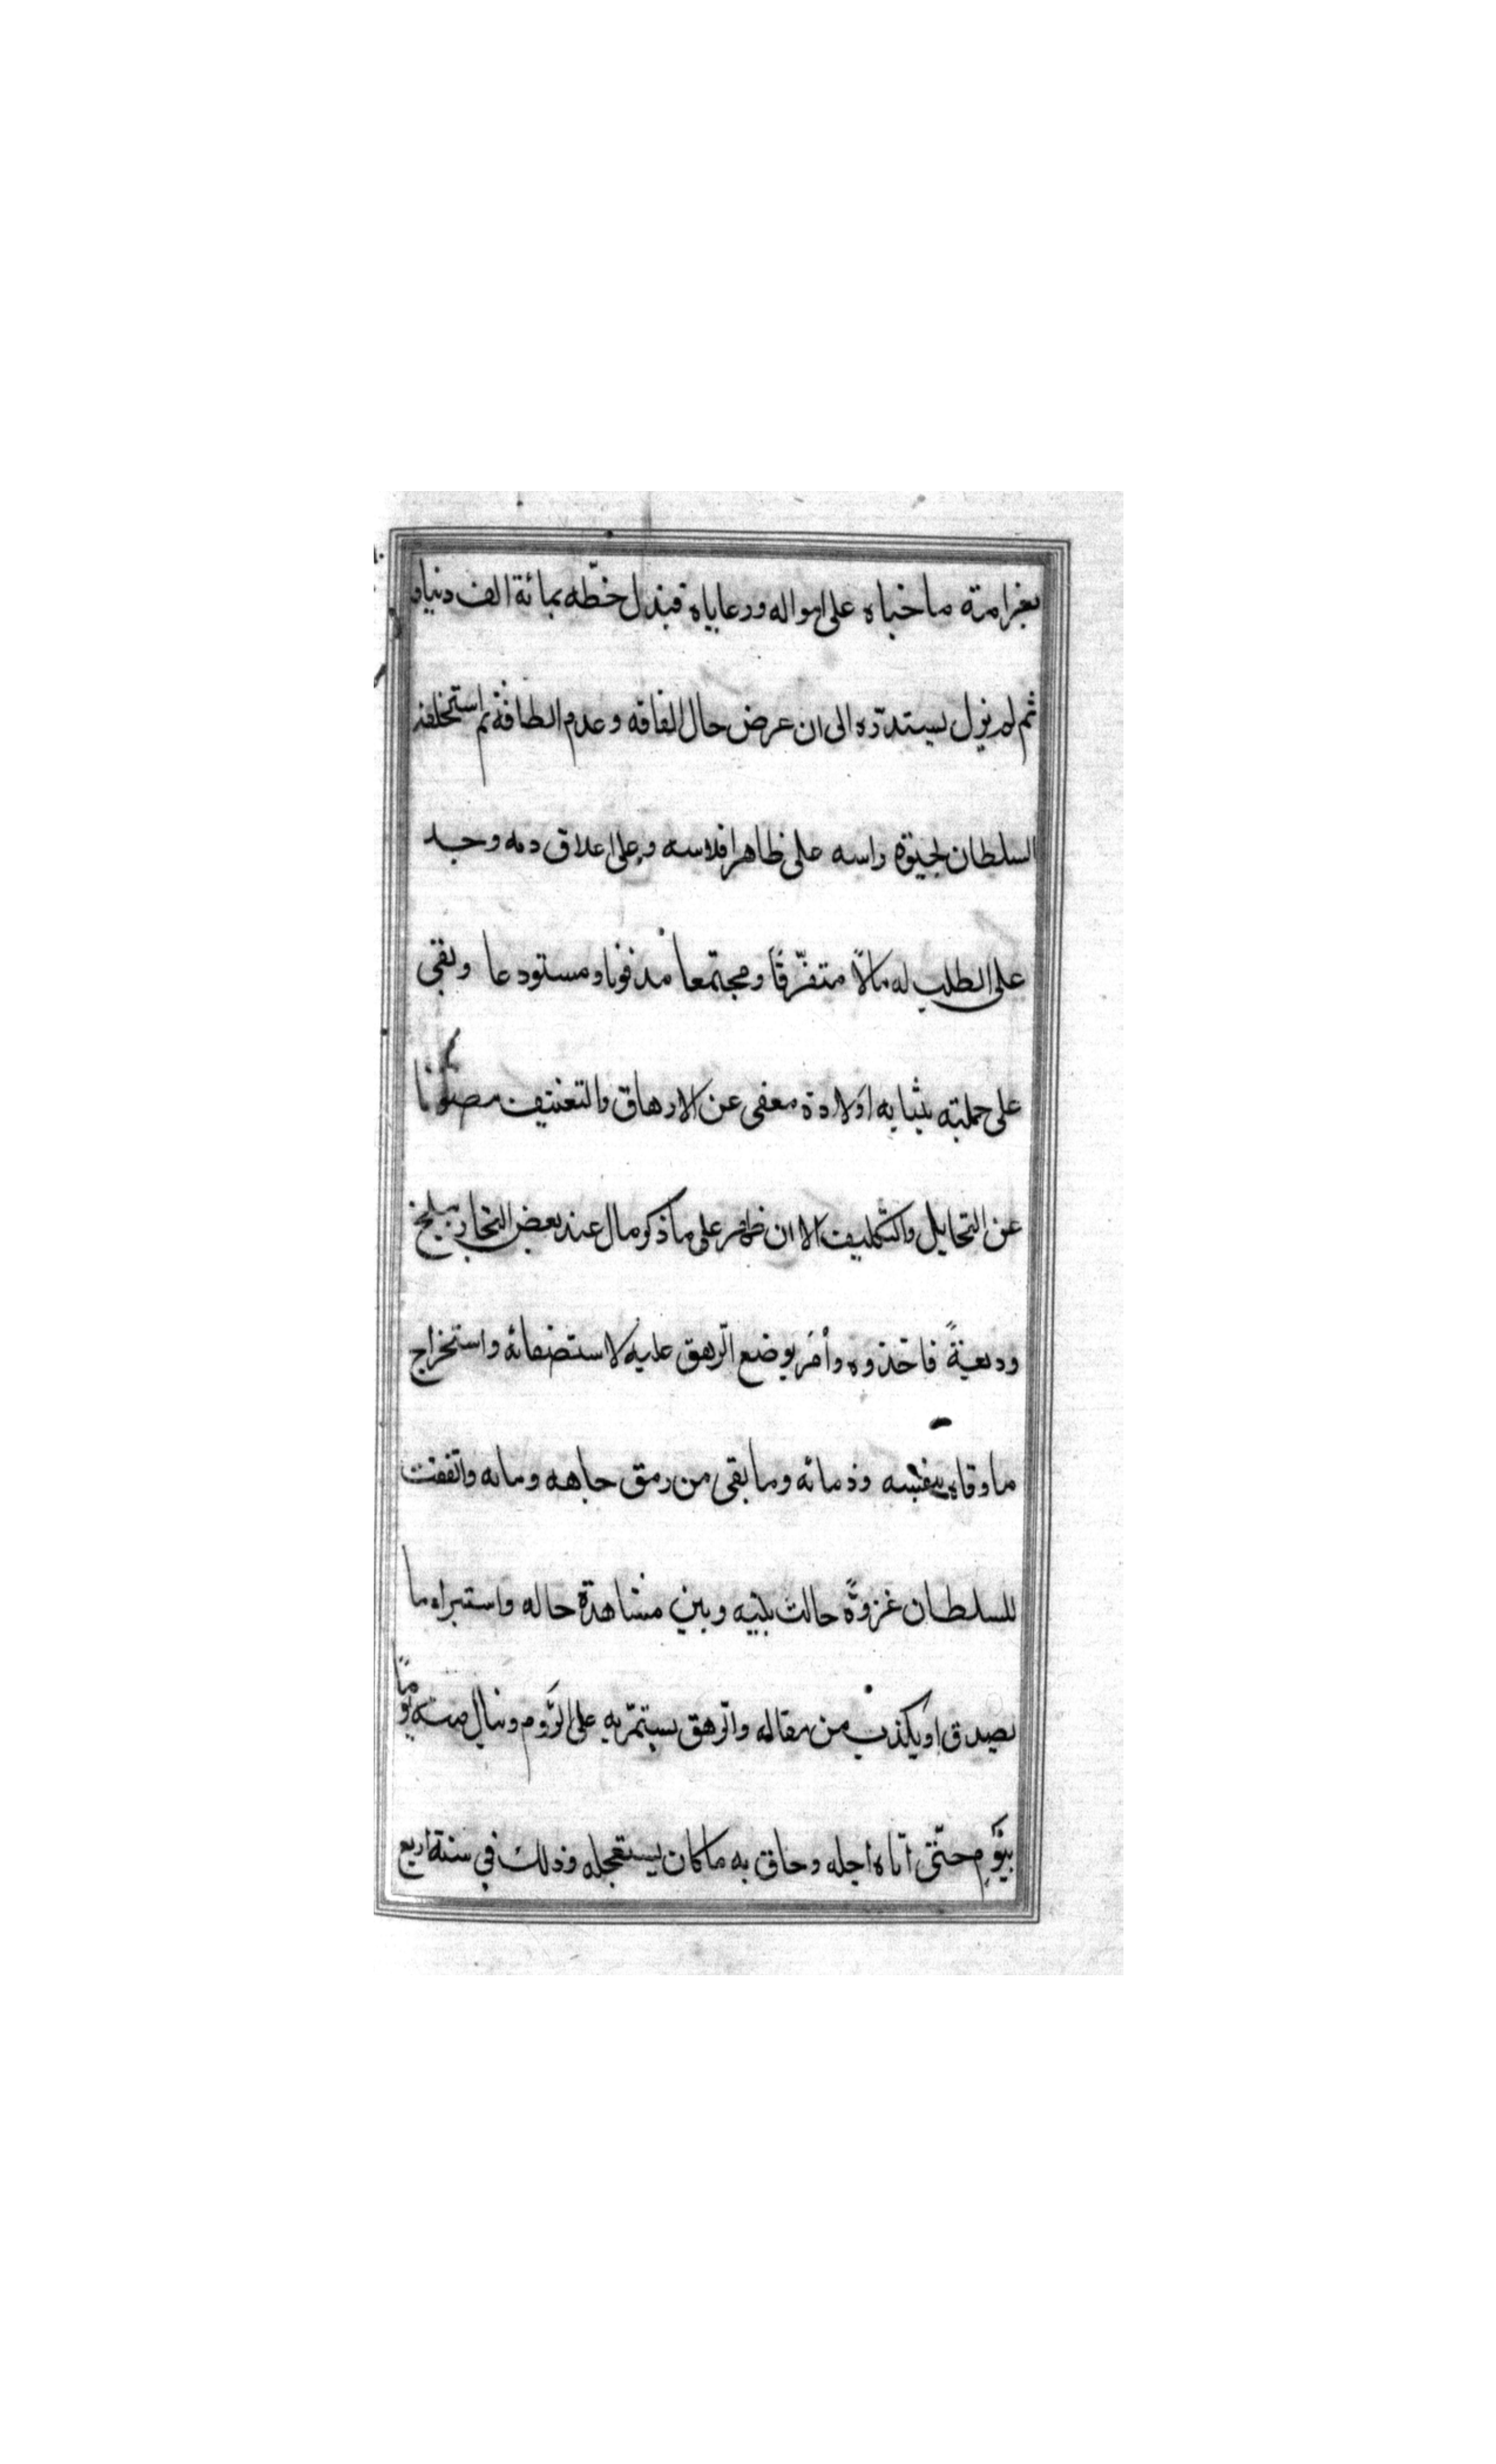 بغرامة ما خباه على امواله ورعاياه فبذل خطّه بمائة الف دينار
ثم لم يزل يستدرّه الى ان عرض حال الفاقه وعدم الطاقة ثم استحلفه
السلطان لحيوة راسه على ظاهر افلاسه وعلى اعلاق دمه وجد
على الطلب له مالاً متفرّقًا ومجتمعا مدفونا ومستودعا وبقى
على جملته اولاده معفى عن الارهاق والتعنيف مصونا
عن التحايل والتكليف الا ان ظهر على ما ذكر مال عند بعض التجار ببلخ
وديعةً فاخذوه وأمَر بوضع الرّهق عليه لاستصفائه واستخراج
ما وقاه بنفسه وذمائه وما بقى من رمق جاهه ومائه واتفقت
للسلطان غزوةً حالت بينه وبين مشاهدة حاله واستبراء ما
يصدق او يكذب من مقاله والرّهق يستمرّ به على الرّوم وينال منه يومًا
بيَوم حتّى اتاه اجله وحاق به ما كان يستعجله وذلك في سنة اربع